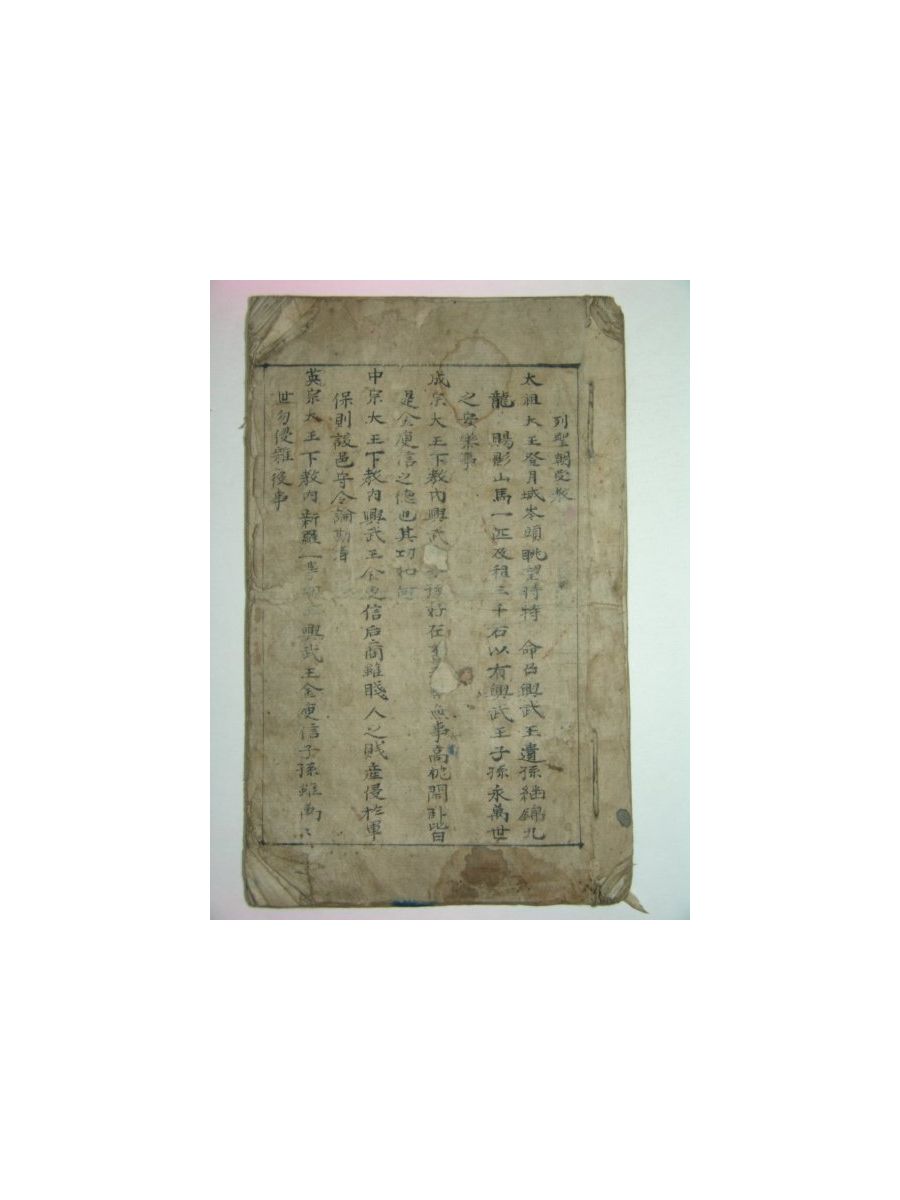 列聖朝受教
太祖大王登月城岑頭眺望時特 命召興武王遺孫継錦九
龍 賜影山馬一匹及租三千石以有興武王子孫永萬世
之安樂事
成宗大王下教內興武 孫好在 無事高枕閑卧皆
是金庾信之德也其功如何
中宗大王下教內興武王金庾信后裔雖賤人之賎産侵於軍
保則該邑守令論勘事
英宗大王下教內新羅一 興武王金庾信子孫雖萬〻
世勿侵雜役事